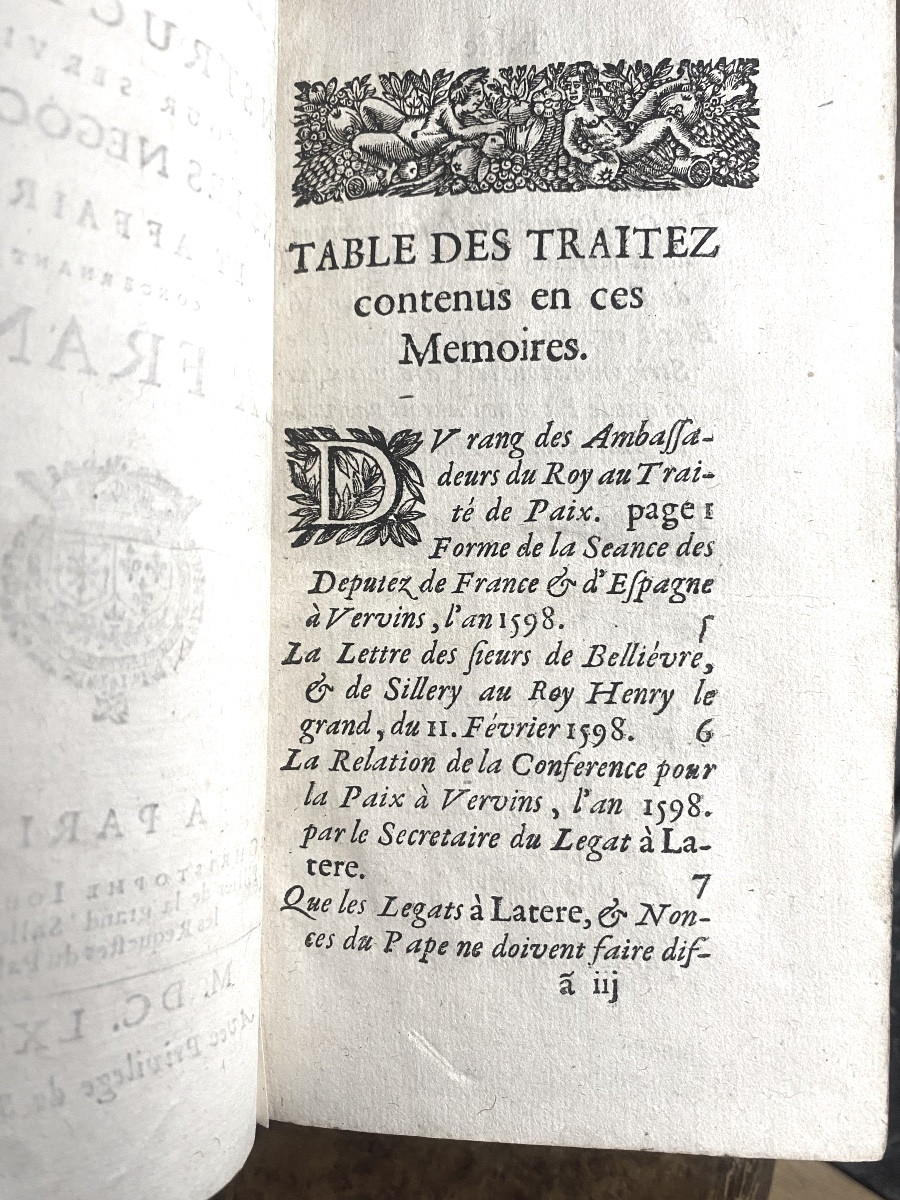 TABLE DES TRAITEZ
contenus en ces
Memoires.
DV rang des Ambaſſa-
deurs du Roy au Trai-
té de Paix. page 1
Forme de la Seance des
Deputez de France & d'Eſpagne
à Vervins, l'an 1598. 5
La Lettre des ſieurs de Belliévre,
& de Sillery au Roy Henry le
grand, du 11. Février 1598. 6
La Relation de la Conference pour
la Paix à Vervins, l'an 1598.
par le Secretaire du Legat à La-
tere. 7
Que les Legats à Latere, & Non-
ces du Pape ne doivent faire dif-
ã iij